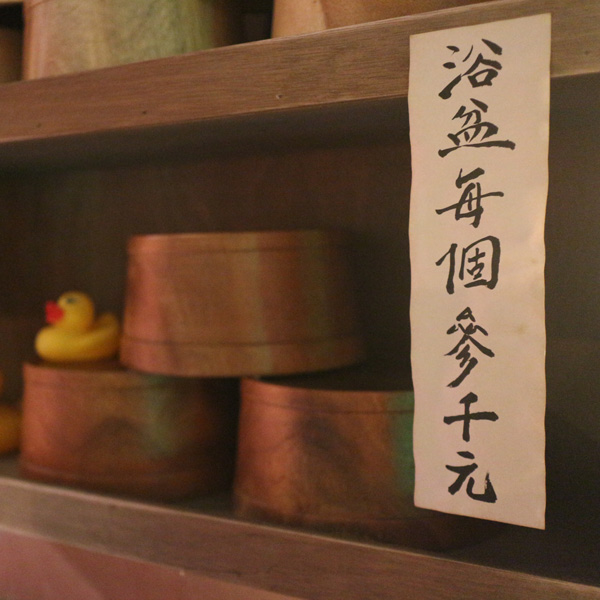 浴盆每個參千元